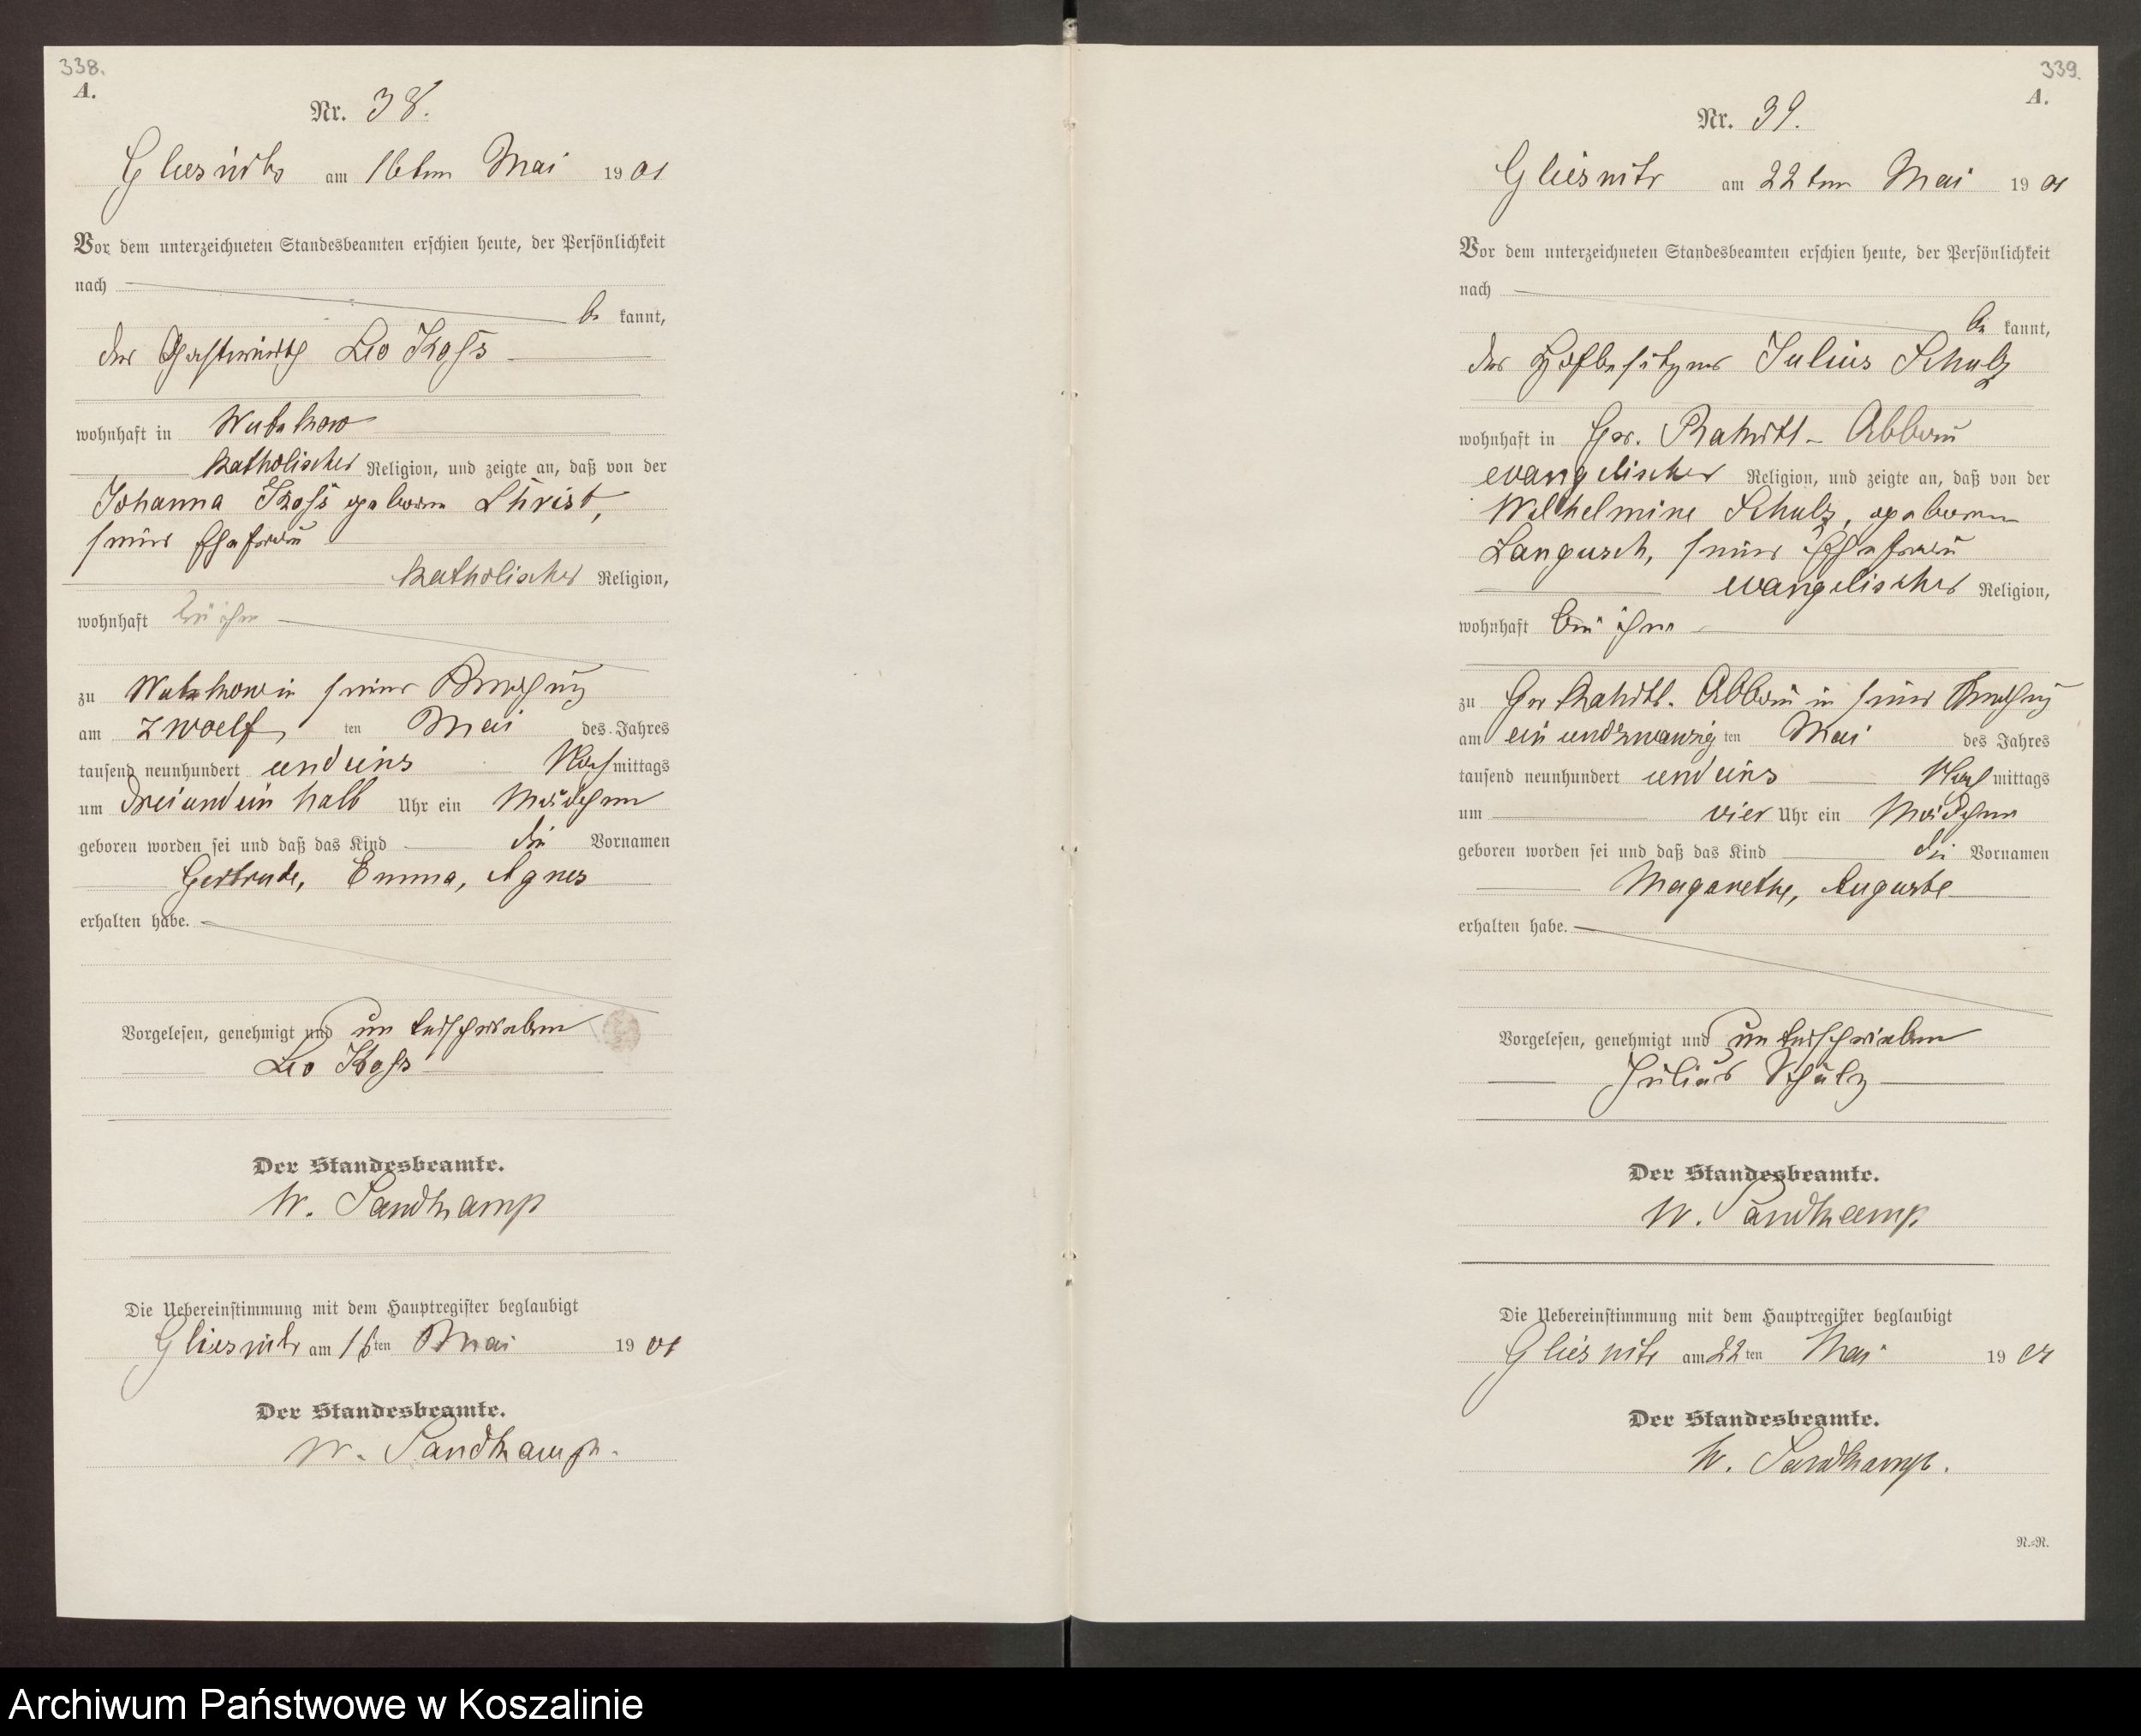 338.
A.
Nr. 38.
Gliesnitz am 16ten Mai 1901
Vor dem unterzeichneten Standesbeamten erschien heute, der Persönlichkeit
nach
be kannt,
der Gastwirth Leo Koss
wohnhaft in Wutzkow
katholischer Religion, und zeigte an, daß von der
Johanna Koss geborne Christ,
seiner Ehefrau
katholischer Religion,
wohnhaft bei ihm
zu Wutzkow in seiner Behausung
am zwoelf ten Mai des Jahres
tausend neunhundert und eins Nachmittags
um drei und ein halb Uhr ein Mädchen
geboren worden sei und daß das Kind die Vornamen
Gertrude, Emma, Agnes
erhalten habe.
Vorgelesen, genehmigt und unterschrieben
Leo Koss
Der Standesbeamte.
W. Sandkamp
Die Uebereinstimmung mit dem Hauptregister beglaubigt
Gliesnitz am 16ten Mai 1901
Der Standesbeamte.
W. Sandkamp.
339.
A.
Nr. 39.
Gliesnitz am 22ten Mai 1901
Vor dem unterzeichneten Standesbeamten erschien heute, der Persönlichkeit
nach
be kannt,
der Hofbesitzer Julius Schulz
wohnhaft in Gr. Rakitt-Abbau
evangelischer Religion, und zeigte an, daß von der
Wilhelmine Schulz, geboren
Langusch, seiner Ehefrau
evangelischer Religion,
wohnhaft bei ihm
zu Gr Rakitt-Abbau in seiner Behausung
am ein und zwanzig ten Mai des Jahres
tausend neunhundert und eins Nachmittags
um vier Uhr ein Mädchen
geboren worden sei und daß das Kind die Vornamen
Magarethe, Auguste
erhalten habe.
Vorgelesen, genehmigt und unterschrieben
Julius Schulz
Der Standesbeamte.
W. Sandkamp
Die Uebereinstimmung mit dem Hauptregister beglaubigt
Gliesnitz am 22ten Mai 1901
Der Standesbeamte.
W. Sandkamp.
R.=R.
Archiwum Państwowe w Koszalinie